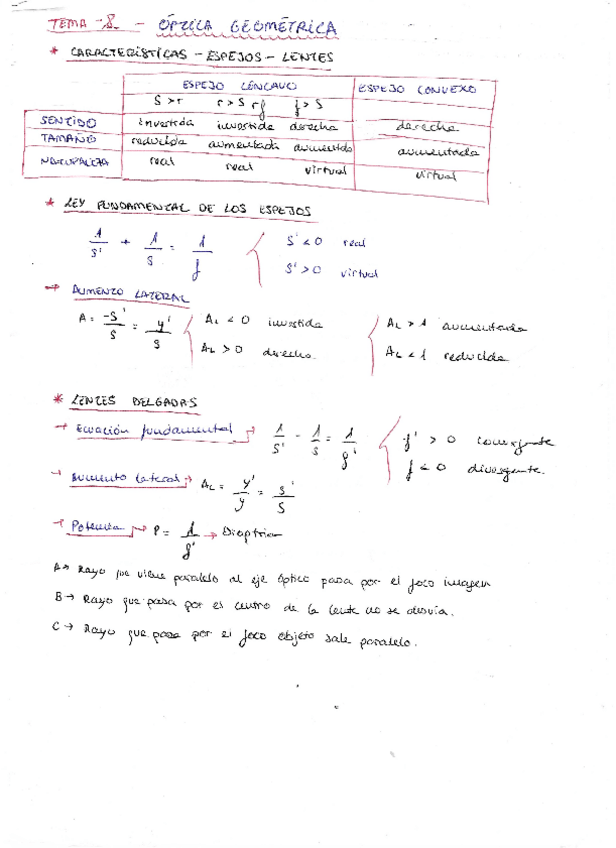 TEMA -8. - ÓPTICA GEOMÉTRICA
* CARACTERÍSTICAS - ESPEJOS - LENTES
ESPEJO CÓNCAVO ESPEJO CONVEXO
S > r r > S > f f > S
SENTIDO invertida invertida derecha derecha
TAMAÑO reducida aumentada aumentada aumentada
NATURALEZA real real virtual virtual
* LEY FUNDAMENTAL DE LOS ESPEJOS
1/s' + 1/s = 1/f S' < 0 real
S' > 0 virtual
→ AUMENTO LATERAL
A = -s'/s = y'/s AL < 0 invertida AL > 1 aumentada
AL > 0 derecha. AL < 1 reducida
* LENTES DELGADAS
→ Ecuación fundamental → 1/s' - 1/s = 1/f' f' > 0 convergente
f < 0 divergente.
→ Aumento lateral → AL = y'/y = s'/s
→ Potencia → P = 1/f' → Dioptrías
A → Rayo que viene paralelo al eje óptico pasa por el foco imagen
B → Rayo que pasa por el centro de la lente no se desvía.
C → Rayo que pasa por el foco objeto sale paralelo.